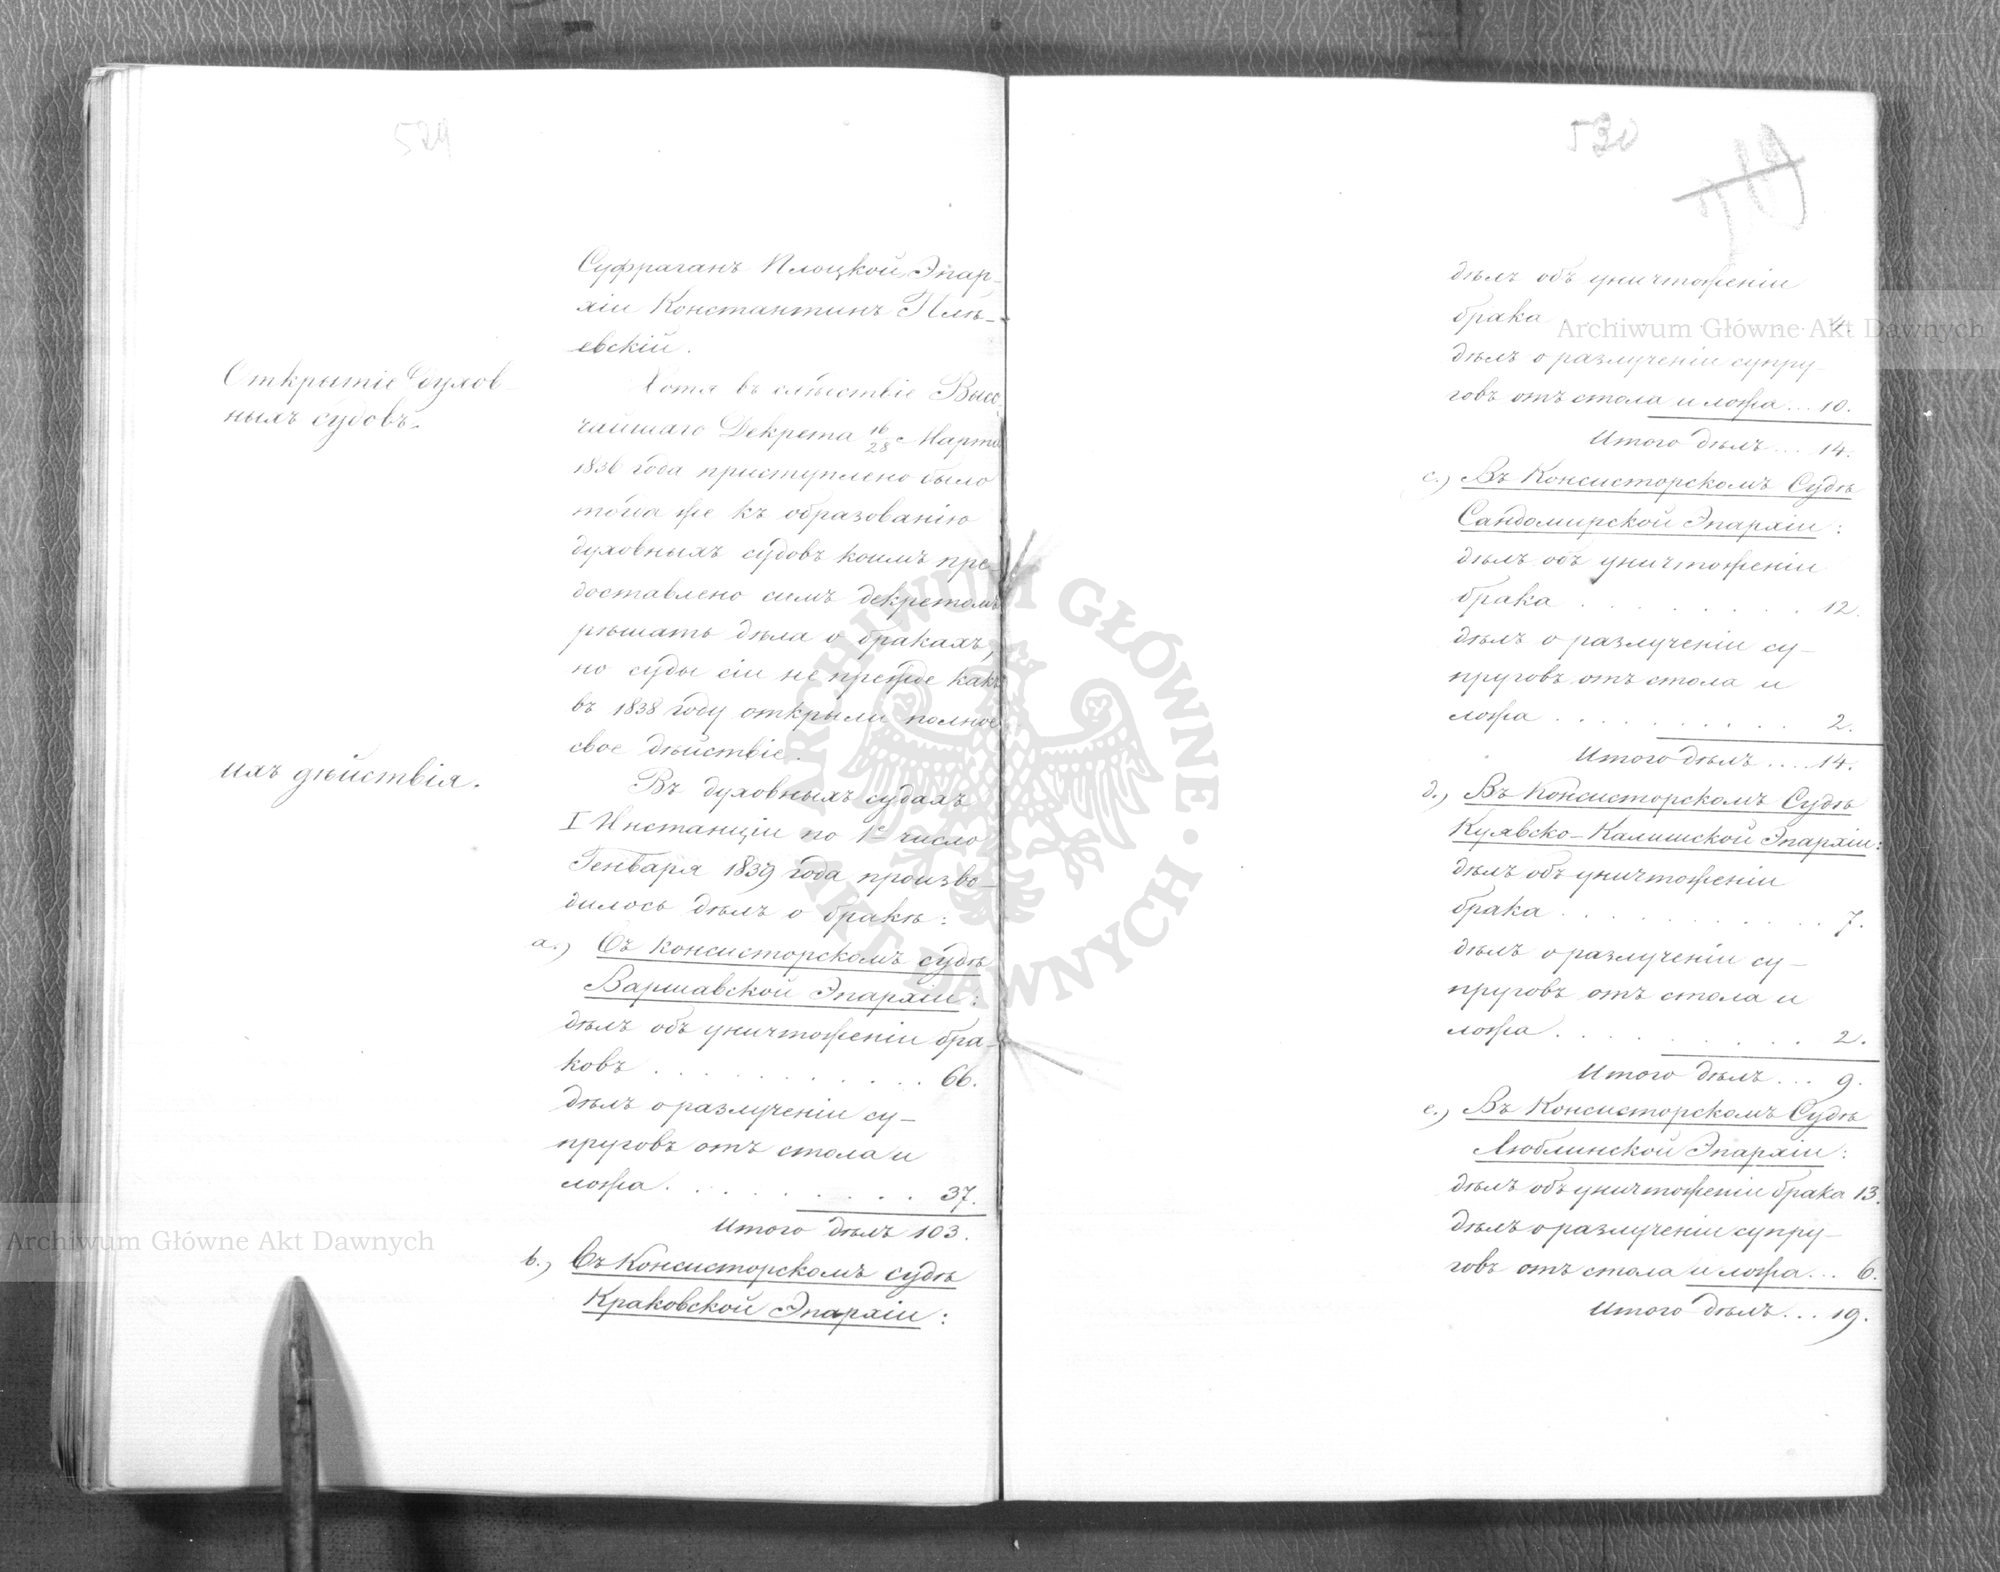 529
Суфраганъ Плоцкой Эпар-
хіи Константинъ Плѣ-
евскій.
Открытіе Духов-
ныхъ судовъ.
Хотя въ слѣдствіе Высо-
чайшаго Декрета 16/28 Марта
1836 года приступлено было
тогда же къ образованію
духовныхъ судовъ коимъ пре-
доставлено симъ декретомъ
рѣшать дѣла о бракахъ,
но суды сіи не прежде какъ
въ 1838 году открыли полное
свое дѣйствіе.
ихъ дѣйствія.
Въ духовныхъ судахъ
I Инстанціи по 1е число
Генваря 1839 года произво-
дилось дѣлъ о бракѣ:
a.) Въ Консисторскомъ судѣ
Варшавской Эпархіи:
дѣлъ объ уничтоженіи бра-
ковъ . . . . . . . . . . . 66.
дѣлъ о разлученіи су-
пруговъ отъ стола и
ложа . . . . . . . . . 37.
Итого дѣлъ 103.
b.) Въ Консисторскомъ судѣ
Краковской Эпархіи:
530
дѣлъ объ уничтоженіи
брака . . . . . . . . . 4.
дѣлъ о разлученіи супру-
говъ отъ стола и ложа... 10.
Итого дѣлъ... 14.
c.) Въ Консисторскомъ Судѣ
Сандомирской Эпархіи:
дѣлъ объ уничтоженіи
брака . . . . . . . . . 12.
дѣлъ о разлученіи су-
пруговъ отъ стола и
ложа . . . . . . . . . 2.
Итого дѣлъ.... 14.
d.) Въ Консисторскомъ Судѣ
Куявско-Калишской Эпархіи:
дѣлъ объ уничтоженіи
брака . . . . . . . . . . 7.
дѣлъ о разлученіи су-
пруговъ отъ стола и
ложа . . . . . . . . . 2.
Итого дѣлъ... 9.
e.) Въ Консисторскомъ Судѣ
Люблинской Эпархіи:
дѣлъ объ уничтоженіи брака 13.
дѣлъ о разлученіи супру-
говъ отъ стола и ложа... 6.
Итого дѣлъ... 19.
Archiwum Główne Akt Dawnych
Archiwum Główne Akt Dawnych
ARCHIWUM GŁÓWNE · AKT DAWNYCH ·